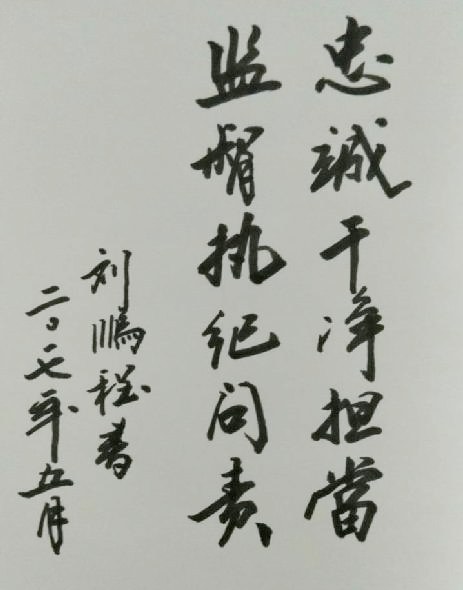 忠誠干净担當
监督执纪问责
刘鵬程书
二〇一七年五月